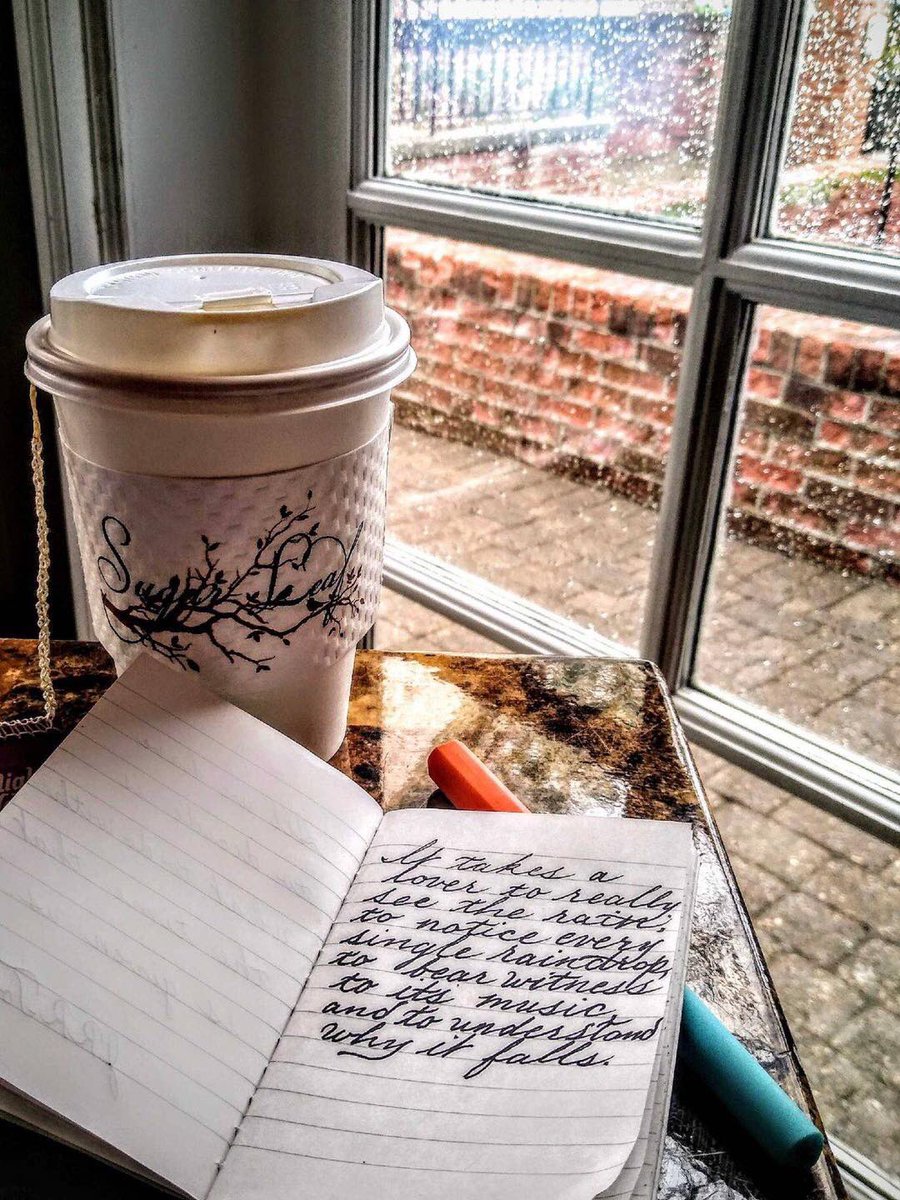 Sugar Leaf
It takes a
lover to really
see the rain;
to notice every
single raindrop,
to bear witness
to its music,
and to understand
why it falls.